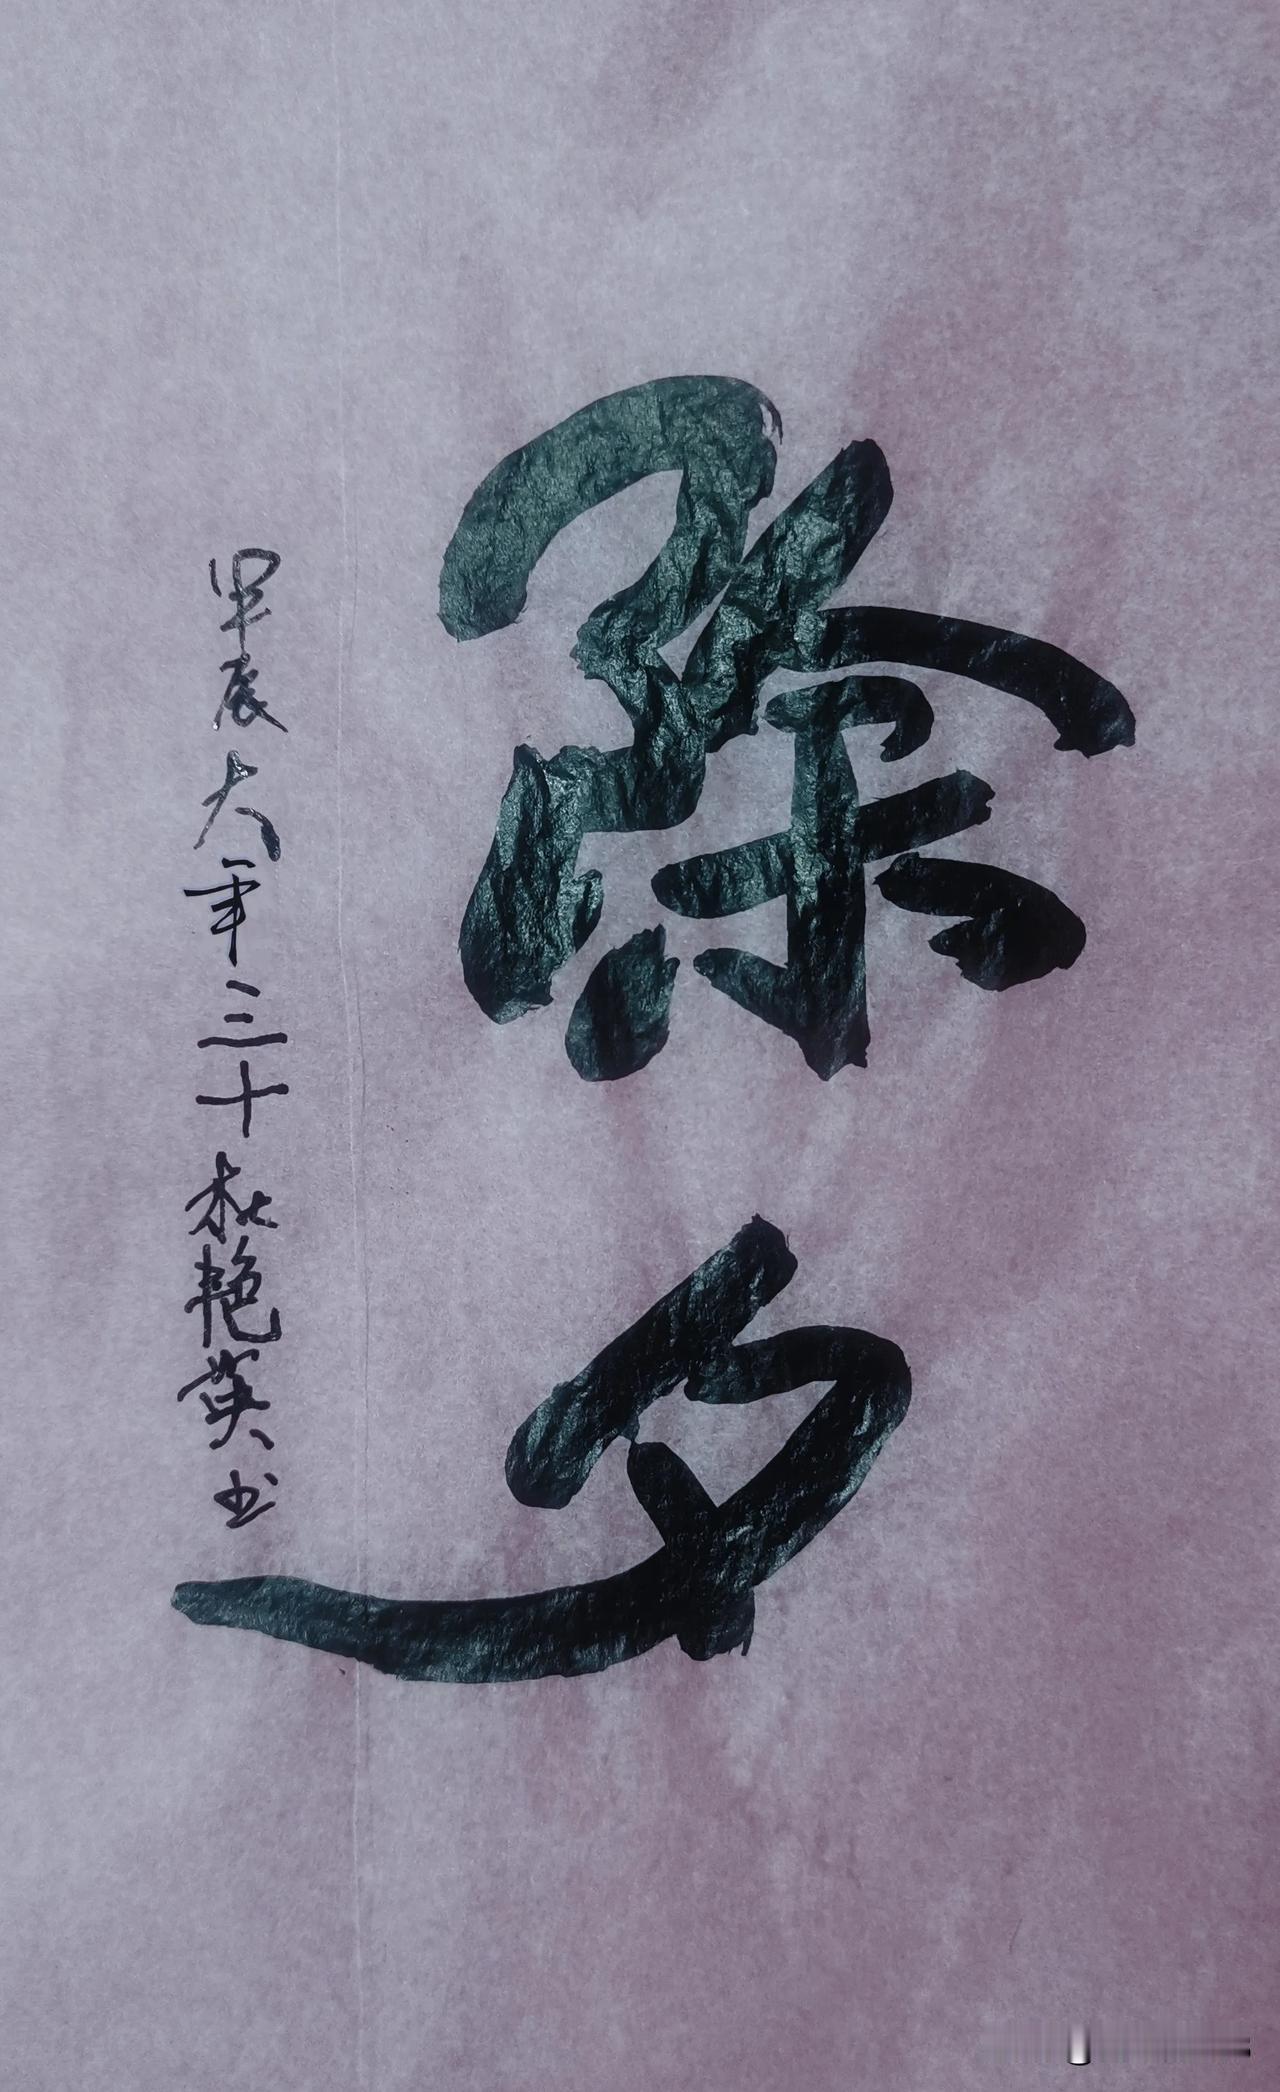 除夕
甲辰大年三十杜艳英书